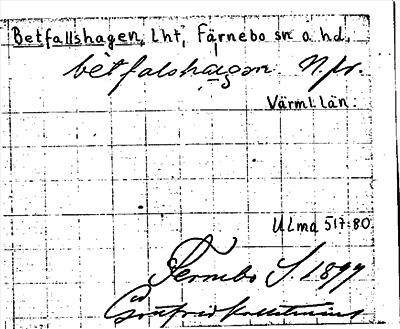 Betfallshagen, Lht, Färnebo sn o. hd.
bètfalshagən N.pr.
Värml. län.
ULma 517:80
Fernebo S. 1897
Gottfrid Kallstenius